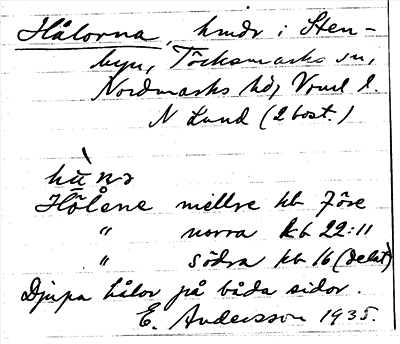 Hålorna, hmdr i Sten-
byn, Töcksmarks sn,
Nordmarks hd, Vrml l.
N Lund (2 bost.)
Hålåne mellre kb 7öre
" norra kb 22:11
" södra kb 16 (delat)
Djupa hålor på båda sidor.
E. Andersson 1935.